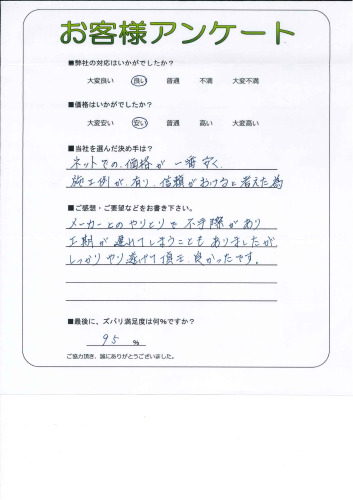 お客様アンケート
■弊社の対応はいかがでしたか?
大変良い 良い 普通 不満 大変不満
■価格はいかがでしたか?
大変安い 安い 普通 高い 大変高い
■当社を選んだ決め手は?
ネットでの価格が一番安く、
施工例が有り、信頼がおけると考えた為
■ご感想・ご要望などをお書き下さい。
メーカーとのやりとりで不手際があり
工期が遅れてしまうこともありましたが、
しっかりやり遂げて頂き、良かったです。
■最後に、ズバリ満足度は何%ですか?
95 %
ご協力頂き、誠にありがとうございました。